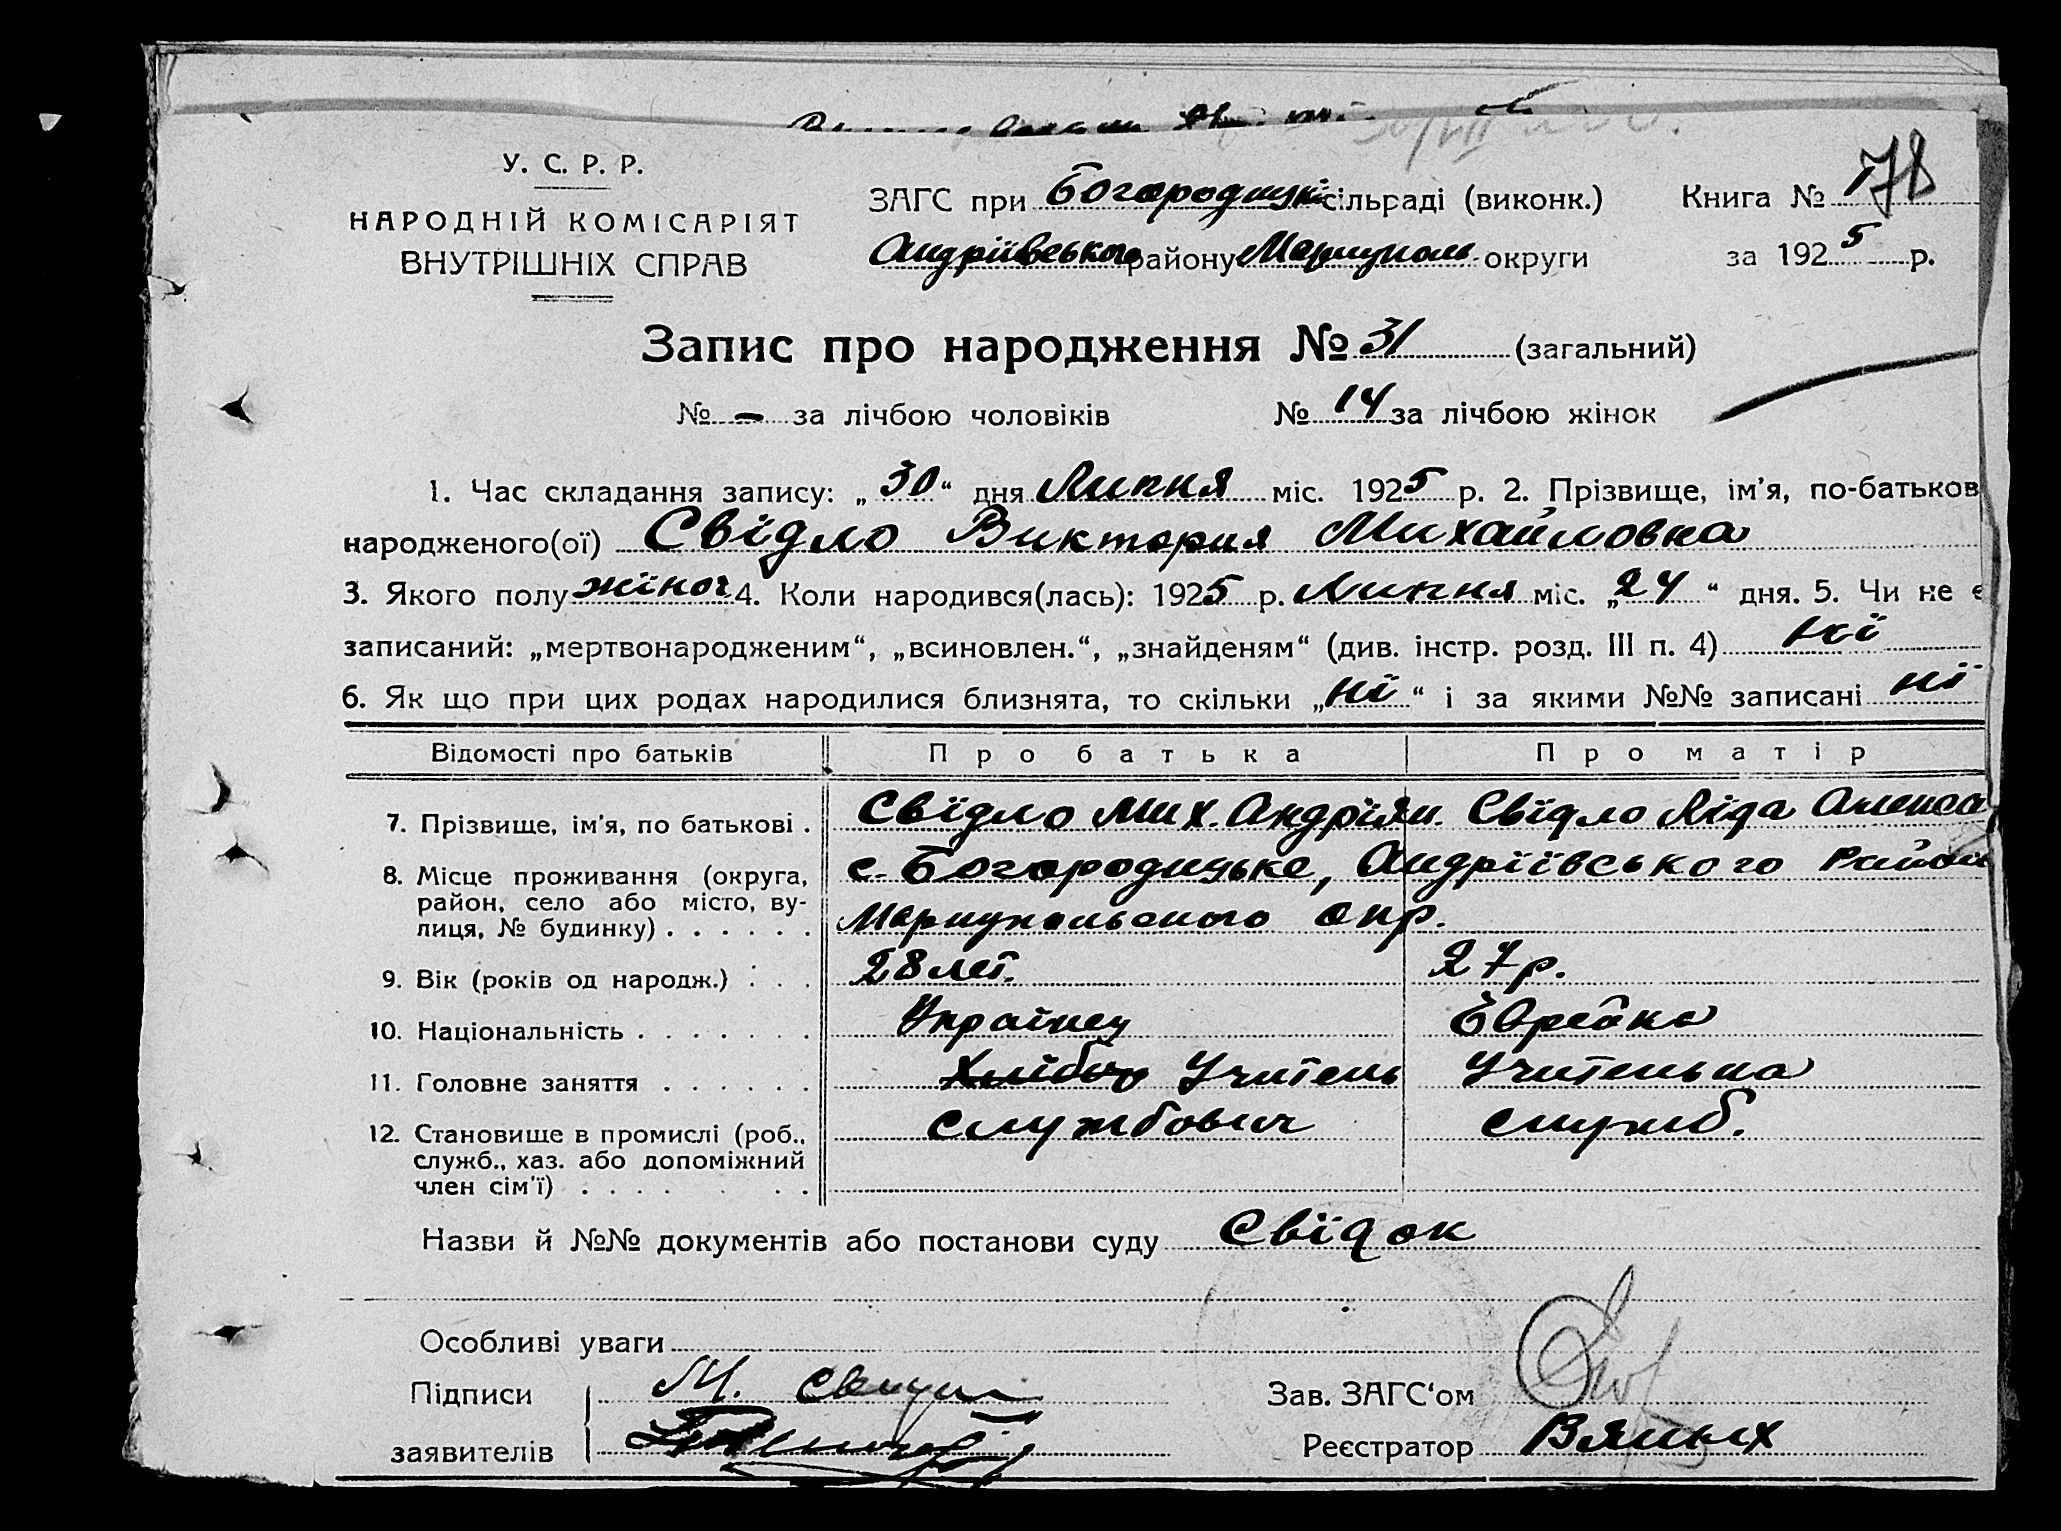 У. С. Р. Р.
НАРОДНІЙ КОМІСАРІЯТ
ВНУТРІШНІХ СПРАВ
ЗАГС при Богородицькі сільраді (виконк.)
Андріївського району Маріуполь. округи
Книга № 178
за 1925 р.
Запис про народження № 31 (загальний)
№ - за лічбою чоловіків № 14 за лічбою жінок
1. Час складання запису: „30“ дня Липня міс. 1925 р. 2. Прізвище, ім'я, по-батьков
народженого(ої) Свідло Виктория Михайловна
3. Якого полу жіноч 4. Коли народився(лась): 1925 р. Липня міс. „24“ дня. 5. Чи не є
записаний: „мертвонародженим“, „всиновлен.“, „знайденям“ (див. інстр. розд. III п. 4) ні
6. Як що при цих родах народилися близнята, то скільки „ні“ і за якими №№ записані ні
Відомості про батьків Про батька Про матір
7. Прізвище, ім'я, по батькові . Свїдло Мих. Андріян. Свїдло Ліда Алекса
8. Місце проживання (округа, с. Богородицьке, Андріївського Район
район, село або місто, ву- Маріупольского окр.
лиця, № будинку) . . . . . .
9. Вік (років од народж.) . . . 28 лет. 27 р.
10. Національність . . . . . . . Украінец Еврейка
11. Головне заняття . . . . . . Хлібор Учитель Учителька
12. Становище в промислі (роб., службович служб.
служб., хаз. або допоміжний
член сім'ї) . . . . . . .
Назви й №№ документів або постанови суду Свїдок
Особливі уваги
Підписи М. Свидл
заявителів
Зав. ЗАГС'ом
Реєстратор Вялых